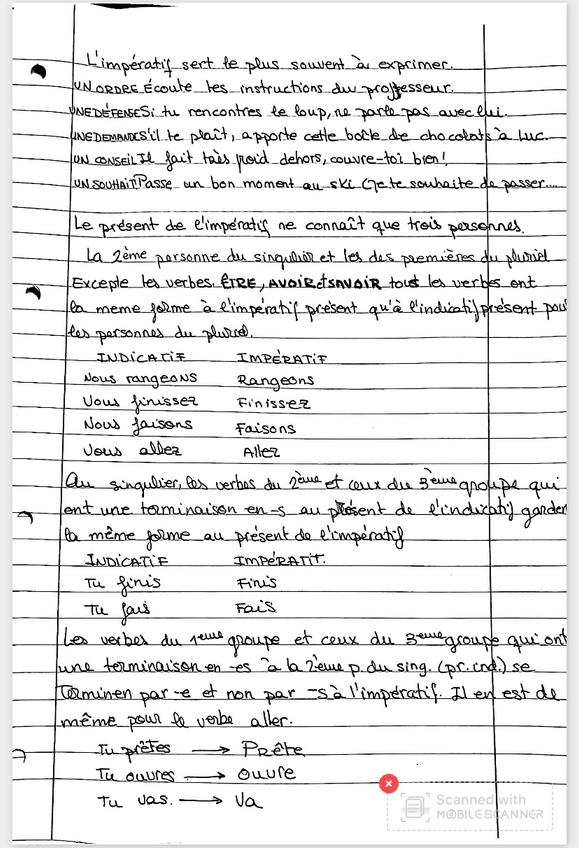 L'impératif sert le plus souvent à exprimer.
UN ORDRE Écoute les instructions du professeur.
UNE DÉFENSE Si tu rencontres le loup, ne parle pas avec lui.
UNE DEMANDE S'il te plaît, apporte cette boîte de chocolats à Luc.
UN CONSEIL Il fait très froid dehors, couvre-toi bien!
UN SOUHAIT Passe un bon moment au ski (Je te souhaite de passer....
Le présent de l'impératif ne connaît que trois personnes.
La 2ème personne du singulier et les des premières du pluriel
Excepte les verbes ÊTRE, AVOIR et SAVOIR tous les verbes ont
la meme forme à l'impératif présent qu'à l'indicatif présent pour
les personnes du pluriel.
INDICATIF IMPÉRATIF
Nous rangeons Rangeons
Vous finissez Finissez
Nous faisons Faisons
Vous allez Allez
Au singulier, les verbes du 2ème et ceux du 3ème groupe qui
ont une terminaison en -s au présent de l'indicatif garden
la même forme au présent de l'impératif
INDICATIF IMPÉRATIF.
Tu finis Finis
Tu fais Fais
Les verbes du 1eme groupe et ceux du 3eme groupe qui ont
une terminaison en -es à la 2ème p. du sing. (pr. ind.) se
Terminen par -e et non par -s à l'impératif. Il en est de
même pour le verbe aller.
Tu prêtes → Prête
Tu ouvres → Ouvre
Tu vas. → Va
Scanned with
MOBILE SCANNER